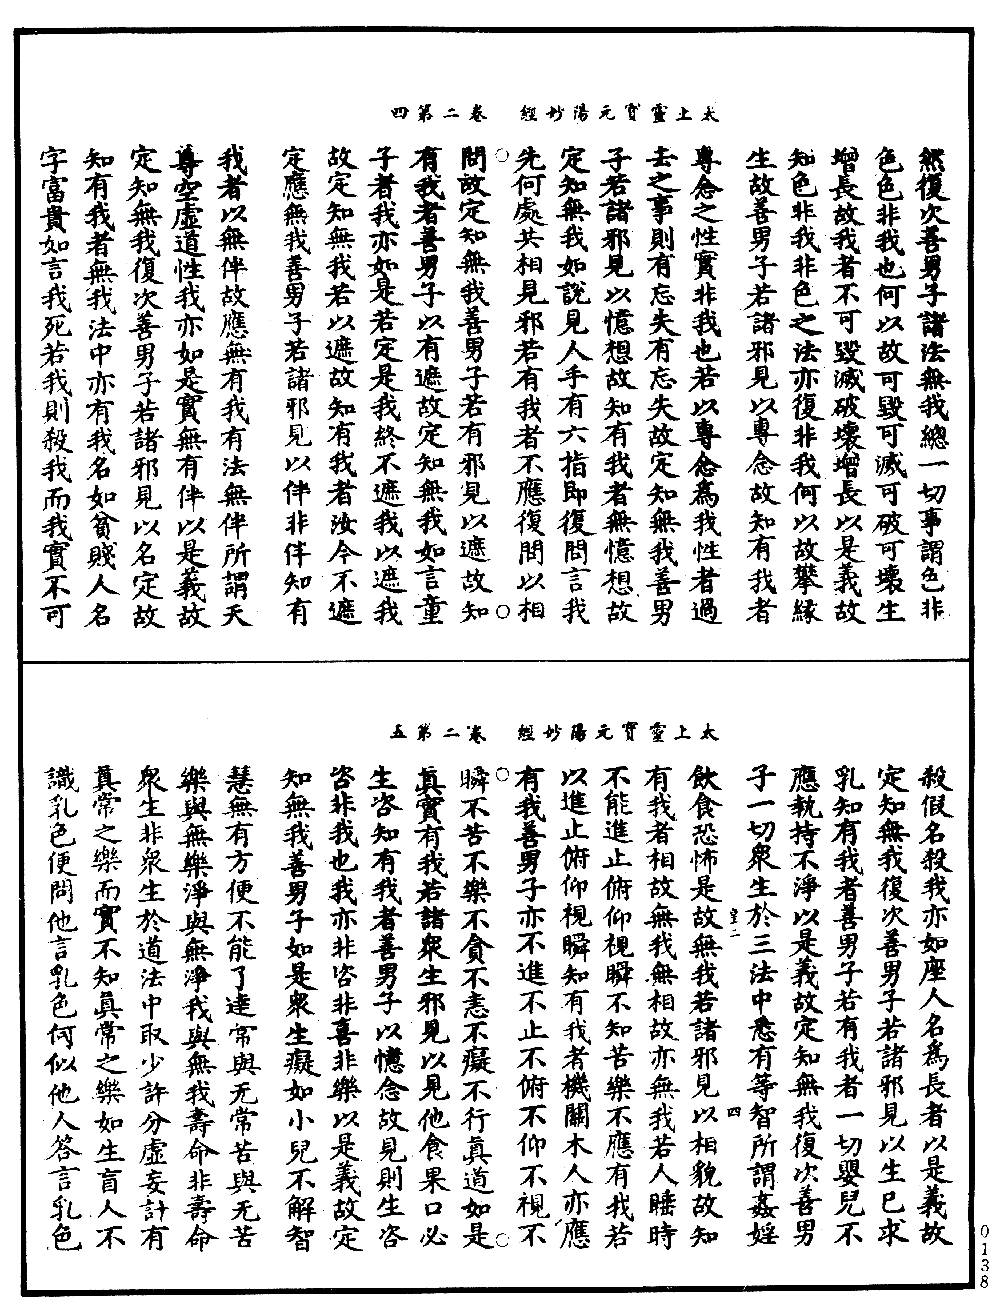 太上靈寶元陽妙經　卷二第四
然復次善男子諸法無我總一切事謂色非
色色非我也何以故可毀可滅可破可壞生
增長故我者不可毀滅破壞增長以是義故
知色非我非色之法亦復非我何以故攀緣
生故善男子若諸邪見以專念故知有我者
專念之性實非我也若以專念為我性者過
去之事則有忘失有忘失故定知無我善男
子若諸邪見以憶想故知有我者無憶想故
定知無我如說見人手有六指即復問言我
先何處共相見邪若有我者不應復問以相
問故定知無我善男子若有邪見以遮故知
有我者善男子以有遮故定知無我如言童
子者我亦如是若定是我終不遮我以遮我
故定知無我若以遮故知有我者汝今不遮
定應無我善男子若諸邪見以伴非伴知有
我者以無伴故應無有我有法無伴所謂天
尊空虛道性我亦如是實無有伴以是義故
定知無我復次善男子若諸邪見以名定故
知有我者無我法中亦有我名如貧賤人名
字富貴如言我死若我則殺我而我實不可
太上靈寶元陽妙經　卷二第五
殺假名殺我亦如座人名為長者以是義故
定知無我復次善男子若諸邪見以生已求
乳知有我者善男子若有我者一切嬰兒不
應執持不淨以是義故定知無我復次善男
子一切眾生於三法中悉有等智所謂姦婬
皇二　四
飲食恐怖是故無我若諸邪見以相貌故知
有我者相故無我無相故亦無我若人睡時
不能進止俯仰視瞬不知苦樂不應有我若
以進止俯仰視瞬知有我者機關木人亦應
有我善男子亦不進不止不俯不仰不視不
瞬不苦不樂不貪不恚不癡不行真道如是
真實有我若諸眾生邪見以見他食果口必
生咨知有我者善男子以憶念故見則生咨
咨非我也我亦非咨非喜非樂以是義故定
知無我善男子如是眾生癡如小兒不解智
慧無有方便不能了達常與无常苦與无苦
樂與無樂淨與無淨我與無我壽命非壽命
眾生非眾生於道法中取少許分虛妄計有
真常之樂而實不知真常之樂如生盲人不
識乳色便問他言乳色何似他人答言乳色
0138